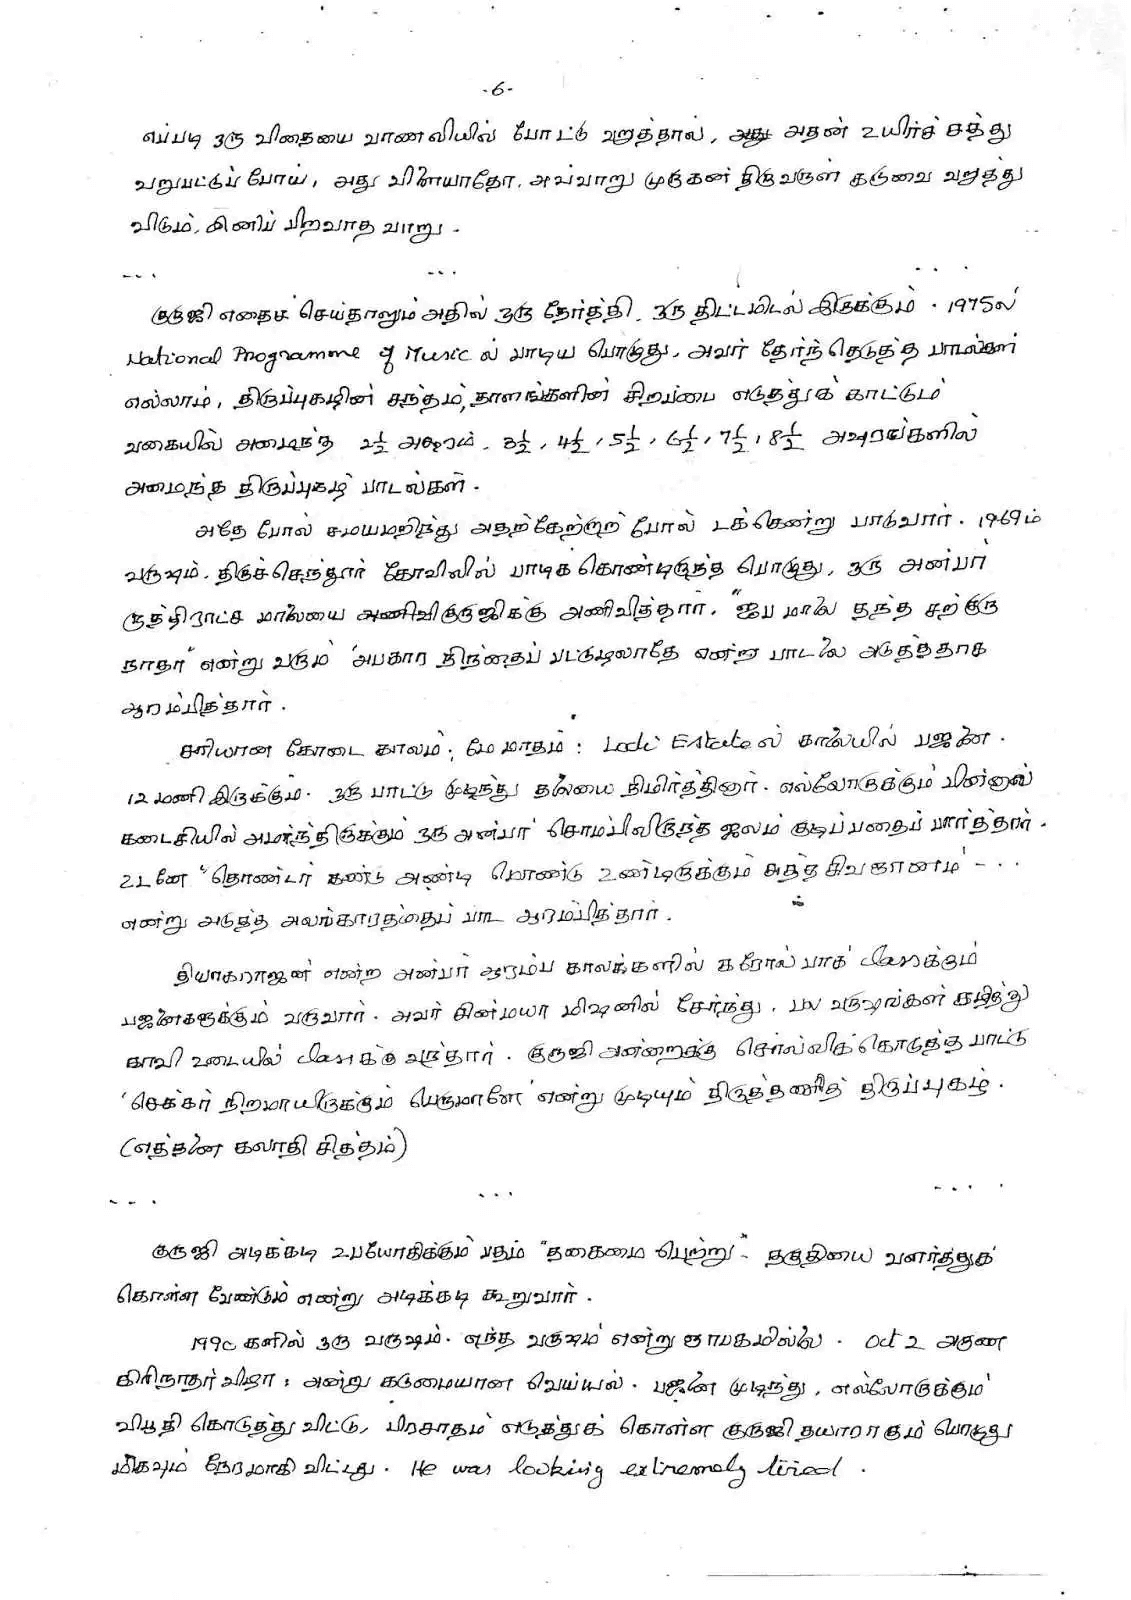 -6-
எப்படி ஒரு விதையை வாணலியில் போட்டு வறுத்தால், அது அதன் உயிர்ச் சத்து
வறுபட்டுப் போய், அது விளையாதோ, அவ்வாறு முருகன் திருவருள் கருவை வறுத்து
விடும், இனிப் பிறவாத வாறு.
... ... ...
குருஜி எதைச் செய்தாலும் அதில் ஒரு நேர்த்தி, ஒரு திட்டமிடல் இருக்கும். 1975ல்
National Programme of Music ல் பாடிய பொழுது, அவர் தேர்ந்தெடுத்த பாடல்கள்
எல்லாம், திருப்புகழின் சந்தம், தாளங்களின் சிறப்பை எடுத்துக் காட்டும்
வகையில் அமைந்த 2½ அக்ஷரம், 3½, 4½, 5½, 6½, 7½, 8½ அக்ஷரங்களில்
அமைந்த திருப்புகழ் பாடல்கள்.
அதே போல் சமயமறிந்து அதற்கேற்றாற் போல் டக்கென்று பாடுவார். 1969ம்
வருஷம், திருச்செந்தூர் கோவிலில் பாடிக் கொண்டிருந்த பொழுது, ஒரு அன்பர்
ருத்திராட்ச மாலையை குருஜிக்கு அணிவித்தார். "ஜப மாலை தந்த சற்குரு
நாதா" என்று வரும் 'அபகார நிந்தைப் பட்டுழலாதே என்ற பாடலை அடுத்ததாக
ஆரம்பித்தார்.
சரியான கோடை காலம்; மே மாதம்: Lodi Estate ல் காலையில் பஜனை.
12 மணி இருக்கும். ஒரு பாட்டு முடிந்து தலையை நிமிர்த்தினார். எல்லோருக்கும் பின்னால்
கடைசியில் அமர்ந்திருக்கும் ஒரு அன்பர் சொம்பிலிருந்த ஜலம் குடிப்பதைப் பார்த்தார்.
உடனே "தொண்டர் கண்டு அண்டி மொண்டு உண்டிருக்கும் சுத்த சிவஞானம்' - ...
என்று அடுத்த அலங்காரத்தைப் பாட ஆரம்பித்தார்.
தியாகராஜன் என்ற அன்பர் ஆரம்ப காலக்களில் கரோல் பாக் classக்கும்
பஜனைகளுக்கும் வருவார். அவர் சின்மயா மிஷனில் சேர்ந்து, பல வருஷங்கள் கழித்து
காவி உடையில் classக்கு வந்தார். குருஜி அன்றைக்கு சொல்லிக் கொடுத்த பாட்டு
'செக்கர் நிறமாயிருக்கும் பெருமாளே' என்று முடியும் திருத்தணித் திருப்புகழ்.
(எத்தனை கலாதி சித்தம்)
... ... ...
குருஜி அடிக்கடி உபயோகிக்கும் பதம் "தகைமை பெற்று" - தகுதியை வளர்த்துக்
கொள்ள வேண்டும் என்று அடிக்கடி கூறுவார்.
1990 களில் ஒரு வருஷம். எந்த வருஷம் என்று ஞாபகமில்லை. Oct 2 அருண
கிரிநாதர் விழா; அன்று கடுமையான வெய்யல். பஜனை முடிந்து, எல்லோருக்கும்
விபூதி கொடுத்து விட்டு, பிரசாதம் எடுத்துக் கொள்ள குருஜி தயாராகும் பொழுது
மிகவும் நேரமாகி விட்டது. He was looking extremely tired.